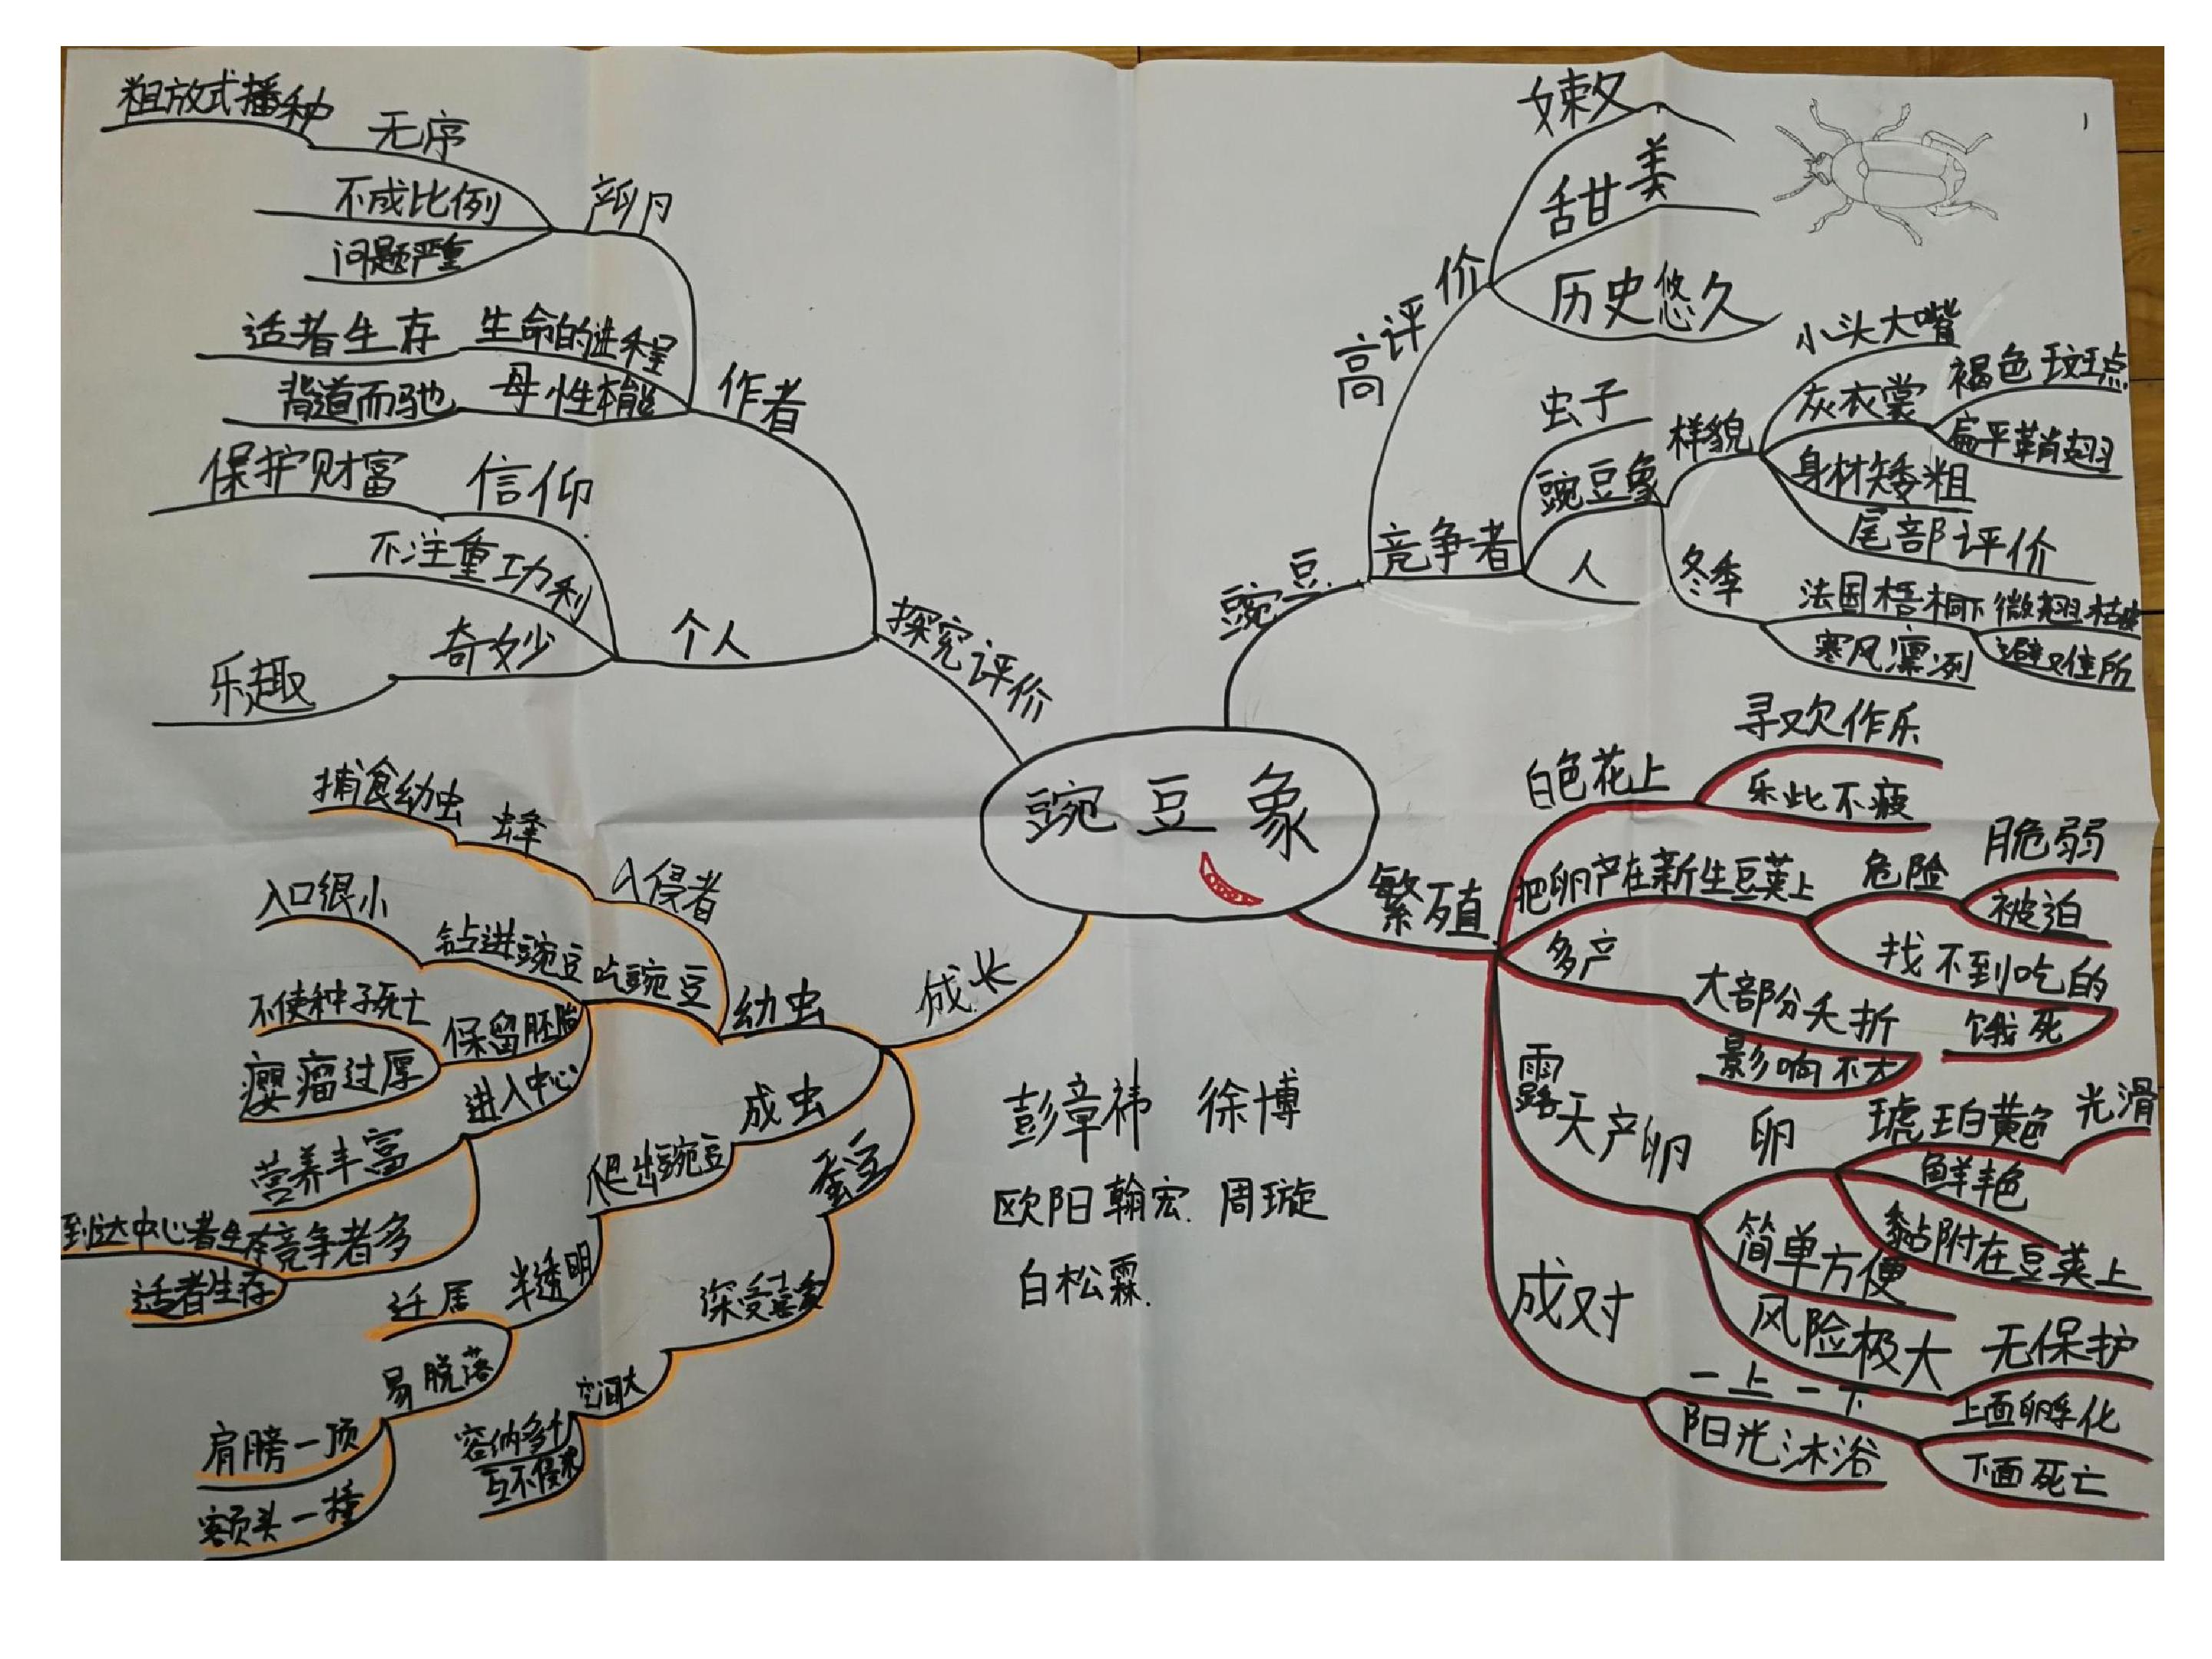 豌豆象
豌豆
高评价
嫩
甜美
历史悠久
竞争者
虫子
豌豆象
人
样貌
小头大嘴
灰衣裳
褐色斑点
扁平鞘翅
身材矮粗
尾部评价
冬季
法国梧桐下微翘枯皮
寒风凛冽
避难住所
繁殖
白色花上
寻欢作乐
乐此不疲
把卵产在新生豆荚上
危险
脆弱
被迫
找不到吃的
饿死
多产
大部分夭折
影响不大
露天产卵
卵
琥珀黄色
光滑
鲜艳
黏附在豆荚上
简单方便
风险极大
无保护
成对
一上一下
上面孵化
下面死亡
阳光沐浴
成长
幼虫
入侵者
蜂
捕食幼虫
吃豌豆
钻进豌豆
入口很小
保留胚胎
不使种子死亡
瘿瘤过厚
进入中心
营养丰富
竞争者多
到达中心者生存
适者生存
成虫
爬出豌豆
半透明
迁居
易脱落
肩膀一顶
额头一撞
蚕豆
深受喜爱
空间大
容纳多个
互不侵犯
探究评价
作者
无序
粗放式播种
不成比例
问题严重
生命的进程
适者生存
母性本能
背道而驰
个人
信仰
保护财富
不注重功利
奇妙
乐趣
彭章祎 徐博
欧阳翰宏 周璇
白松霖